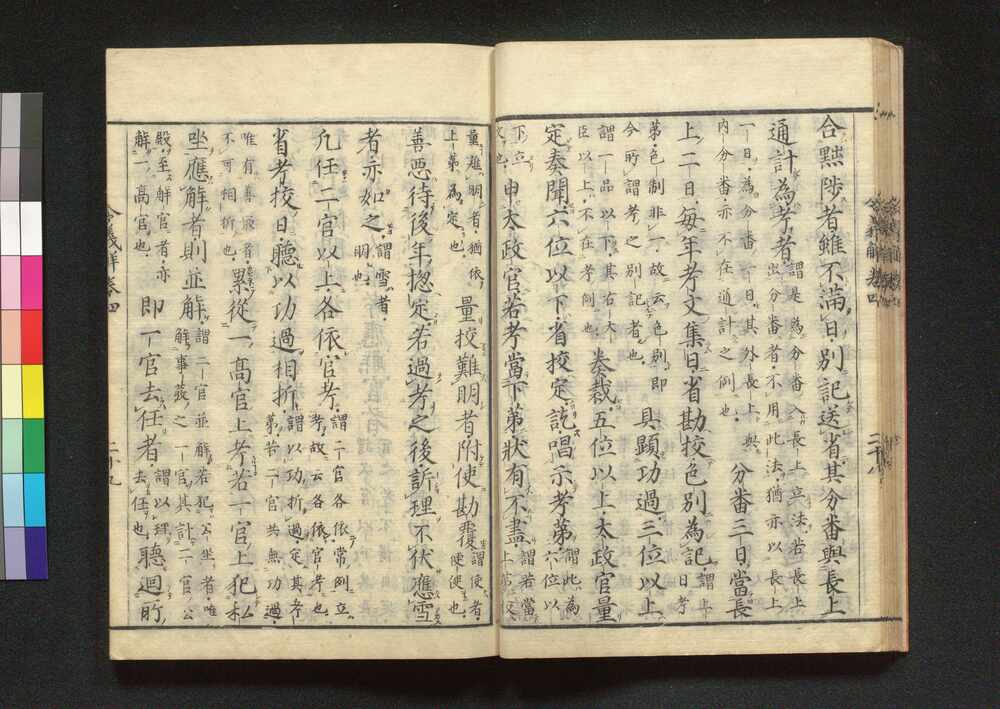 合黜陟者雖不滿日別記送省其分番與長上
通計為考者謂是為分番入長上立法若長上出分番者不用此法猶亦以長上
一日為分番一日其外長上與內分番亦不在通計之例也分番三日當長
上二日每年考文集日省勘校色別為記謂日考
第色制非一故云色別即今所謂考之別記者也具顯功過三位以上
謂一品以下其右大臣以上不在考例也奏裁五位以上太政官量
定奏聞六位以下省校定訖唱示考第謂此為六位以
下立文也申太政官若考當下第狀有不盡謂若當上第校
量難明者猶依上第為定也量校難明者附使勘覆謂使者便使也
善惡待後年惣定若過考之後訴理不伏應雪
者亦如之謂雪者明也
凡任二官以上各依官考謂二官各依常例立考故云各依官考也
省考校日聽以功過相折謂以功折過定其考第若二官共無功過
唯有善最者不可相折也累從一高官上考若一官上犯私
坐應解者則並解謂二官並解若犯公坐者唯解事發之一官其計二官公
殿至解官者亦解一高官也即一官去任者謂以理去任也聽迴所
令義解卷四
二十八
令義解卷四
二十九